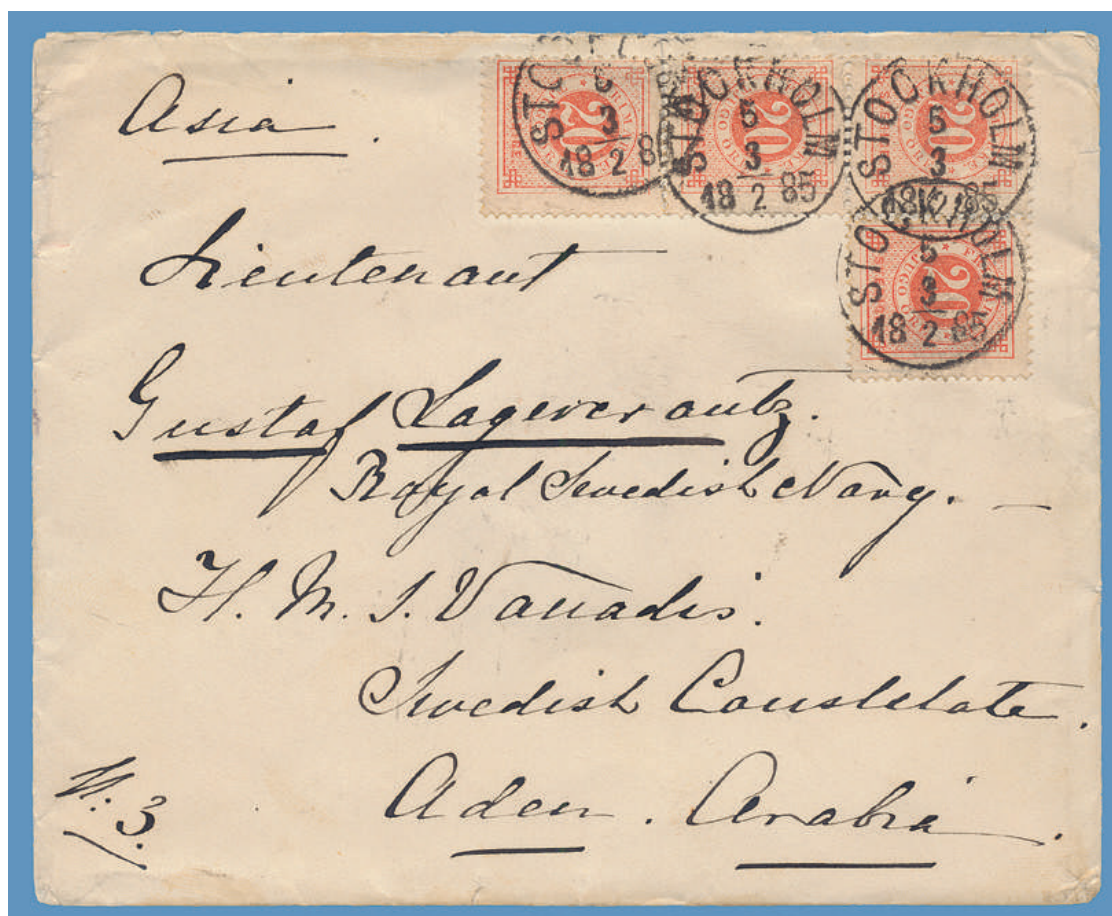 Asia.
STOCKHOLM
5
3
18 2 85
STOCKHOLM
5
3
18 2 85
STOCKHOLM
5
3
18 2 85
20
20
20
20
Lieutenant
Gustaf Lagercrantz.
Royal Swedish Navy. —
H. M. S. Vanadis.
Swedish Consulate.
N: 3.
Aden. Arabia.